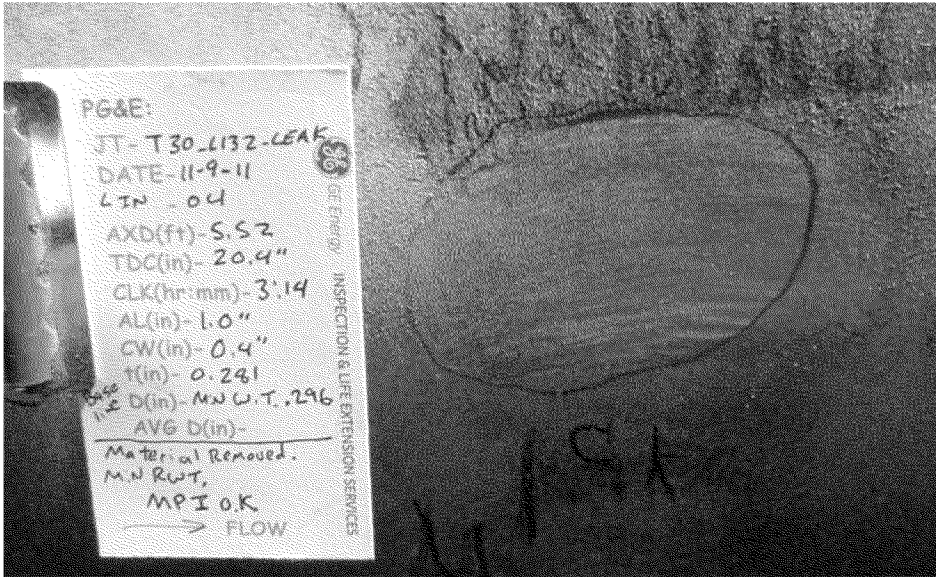 PG&E:
JT- T30_L132-LEAK
DATE-11-9-11
LIN - 04
AXD(ft)- 5.52
TDC(in)- 20.4"
CLK(hr:mm)- 3:14
AL(in)- 1.0"
CW(in)- 0.4"
t(in)- 0.281
D(in)- MN W.T. .296
AVG D(in)-
Material Removed.
MN RWT.
MPI O.K
FLOW
GE Energy INSPECTION & LIFE EXTENSION SERVICES